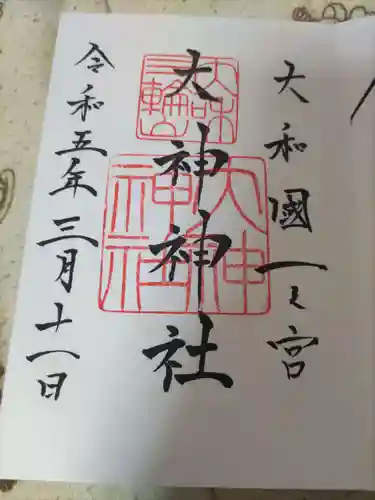 大和國一之宮
大神神社
令和五年三月十一日
三輪山
大神神社